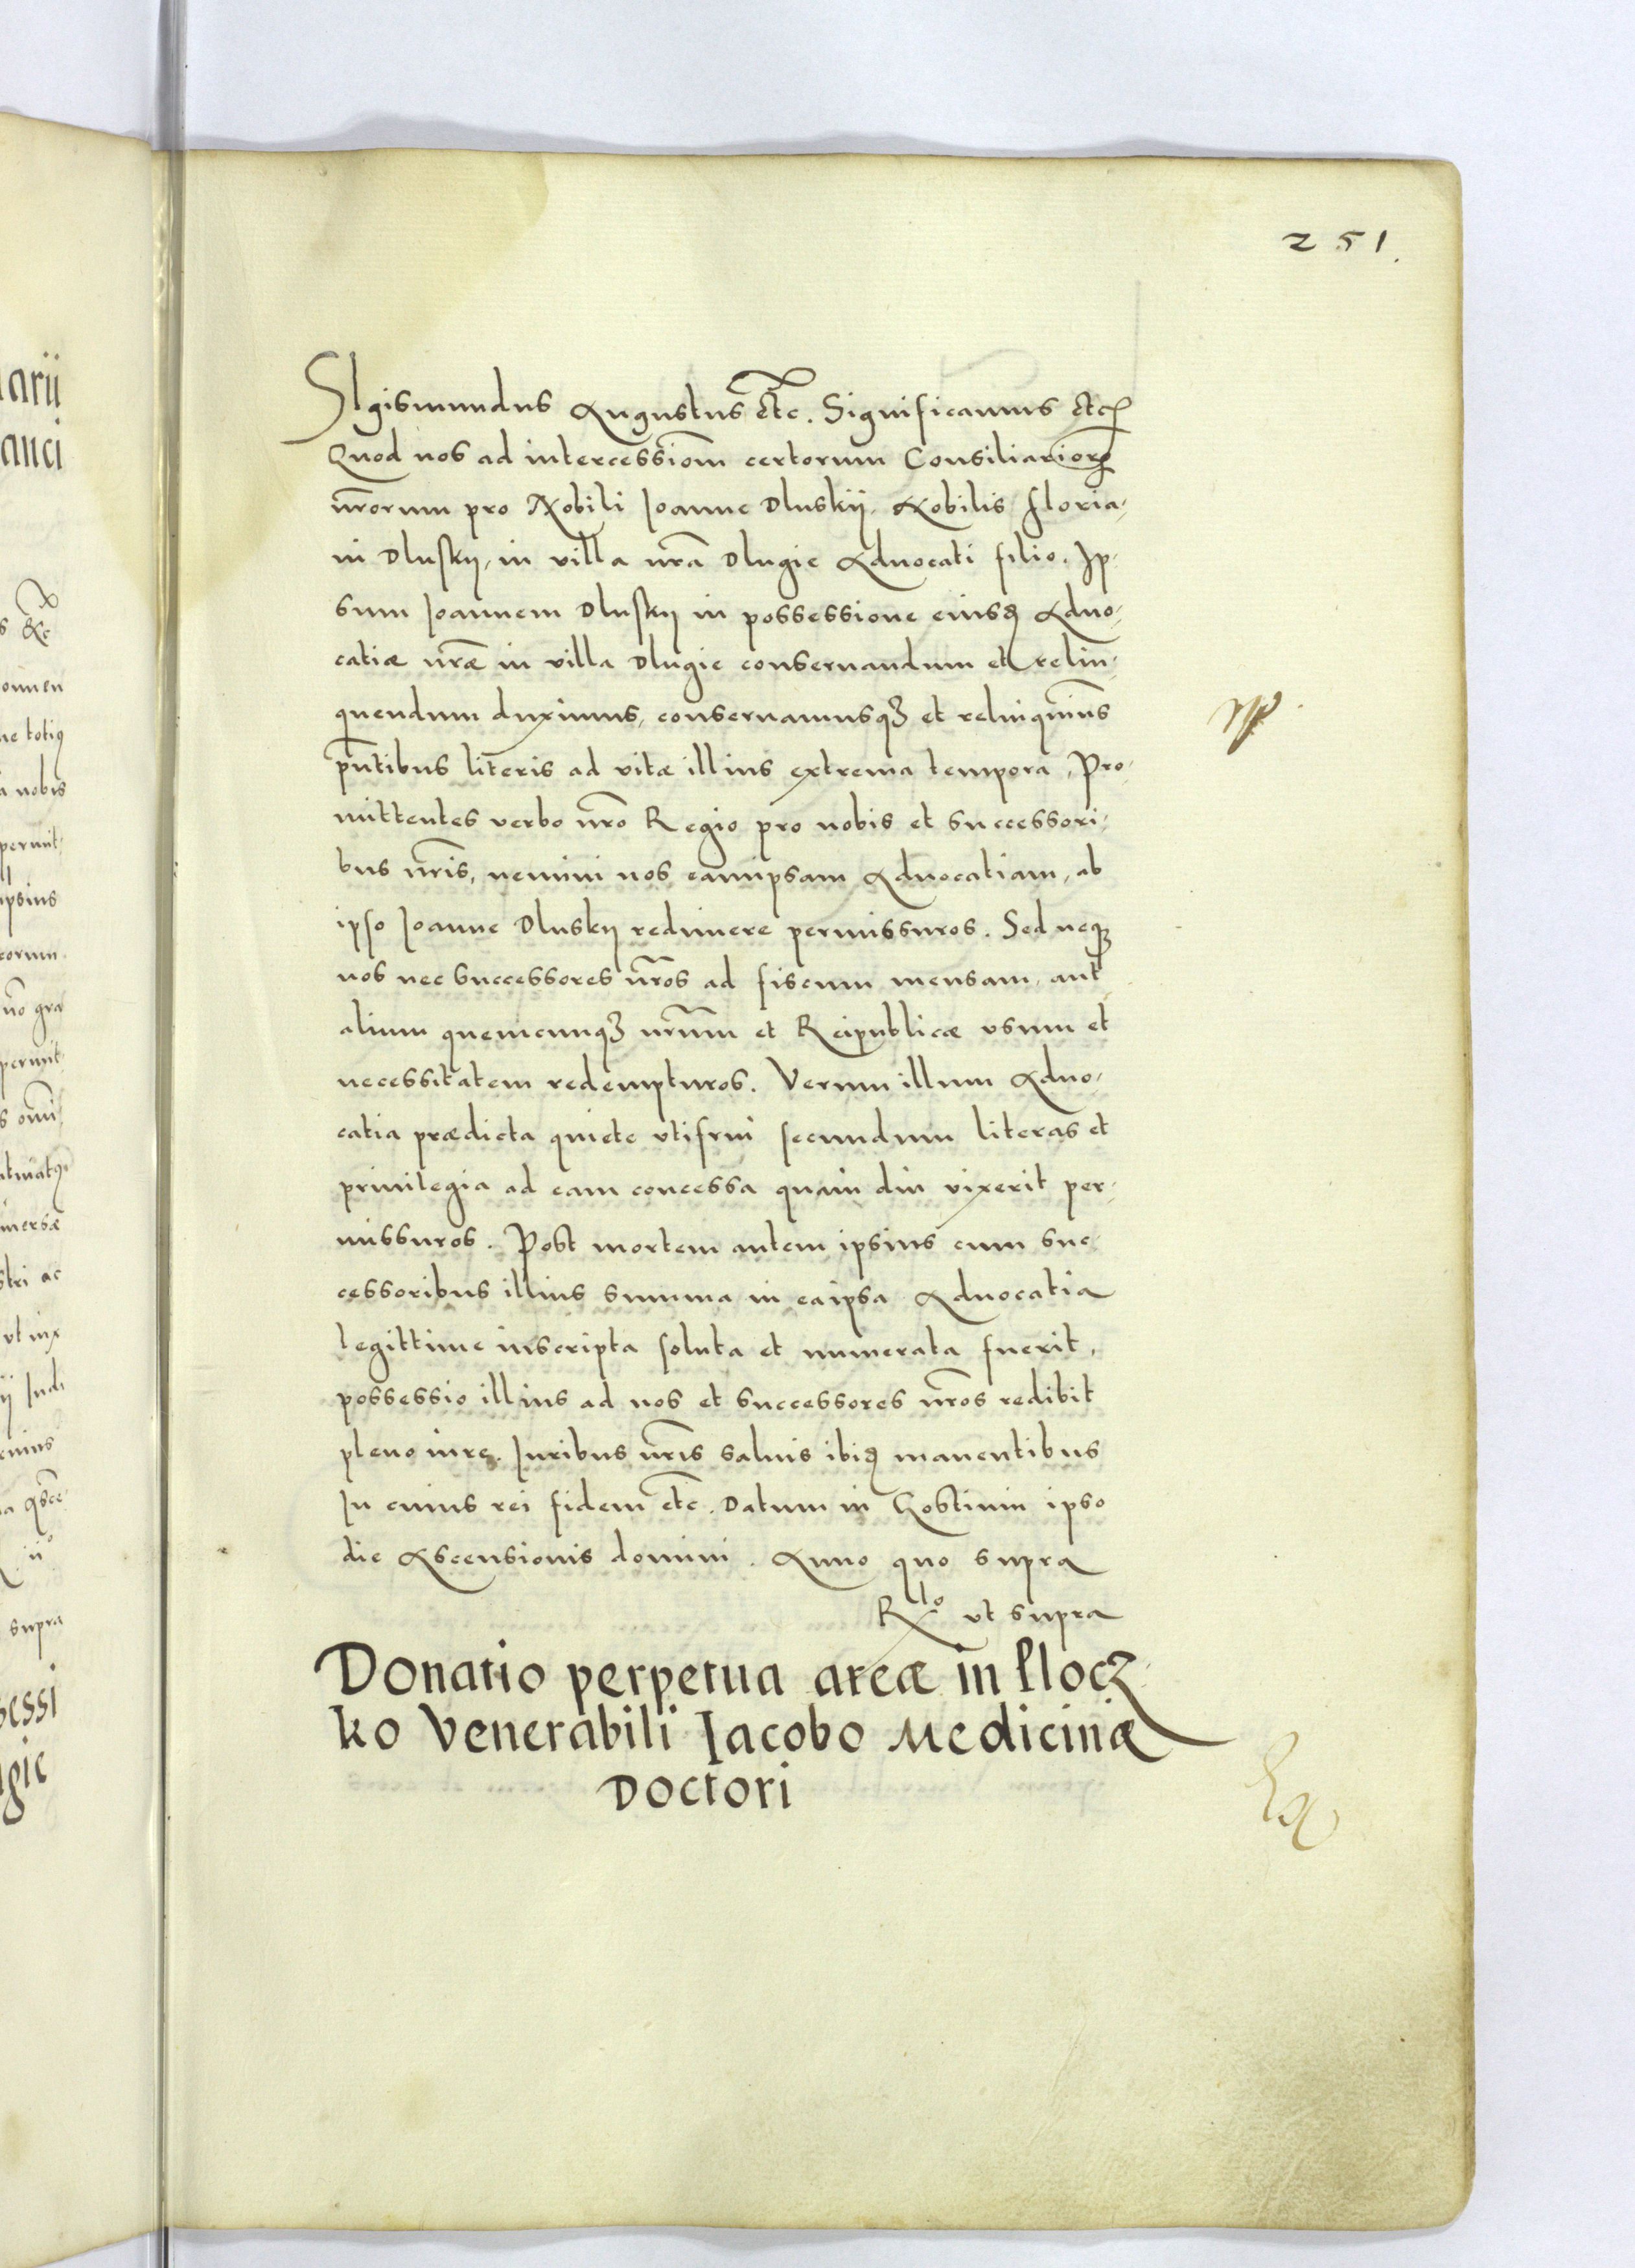 251.
SIgismundus Augustus etc. Significamus etc
Quod nos ad intercessiom certorum Consiliarior
nrorum pro Nobili Joanne Dluskij, Nobilis Floria-
ni Dluskij, in villa nra Dlugie Aduocati filio. Ip-
sum Joannem Dluskij in possessione eiusd Aduo-
catiæ nræ in villa Dlugie conseruandum et relin-
quendum duximus, conseruamusqꝫ et relinquims
pntibus literis ad vitæ illius extrema tempora, Pro-
mittentes verbo nro Regio pro nobis et successori-
bus nris, nemini nos eamipsam Aduocatiam, ab
ipso Joanne Dluskij redimere permissuros. Sed neqꝫ
nos nec successores nros ad fiscum mensam, aut
alium quemcunqꝫ nrum et Reipublicæ vsum et
necessitatem redempturos. Verum illum Aduo-
catia prædicta quiete vtifrui secundum literas et
priuilegia ad eam concessa quam diu vixerit per-
missuros. Post mortem autem ipsius cum suc-
cessoribus illius summa in eaipsa Aduocatia
legittime inscripta soluta et numerata fuerit,
possessio illius ad nos et successores nros redibit
pleno iure. Juribus nris saluis ibid manentibus
In cuius rei fidem etc. Datum in Gostinin ipso
die Ascensionis domini. Anno quo supra
Rlo ut supra
Donatio perpetua areæ in Plocz-
ko Venerabili Jacobo Medicinæ
Doctori